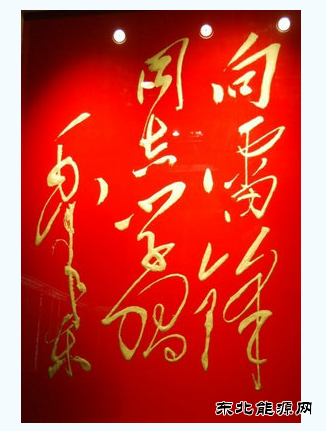 向雷锋
同志学习
毛泽东
东北能源网